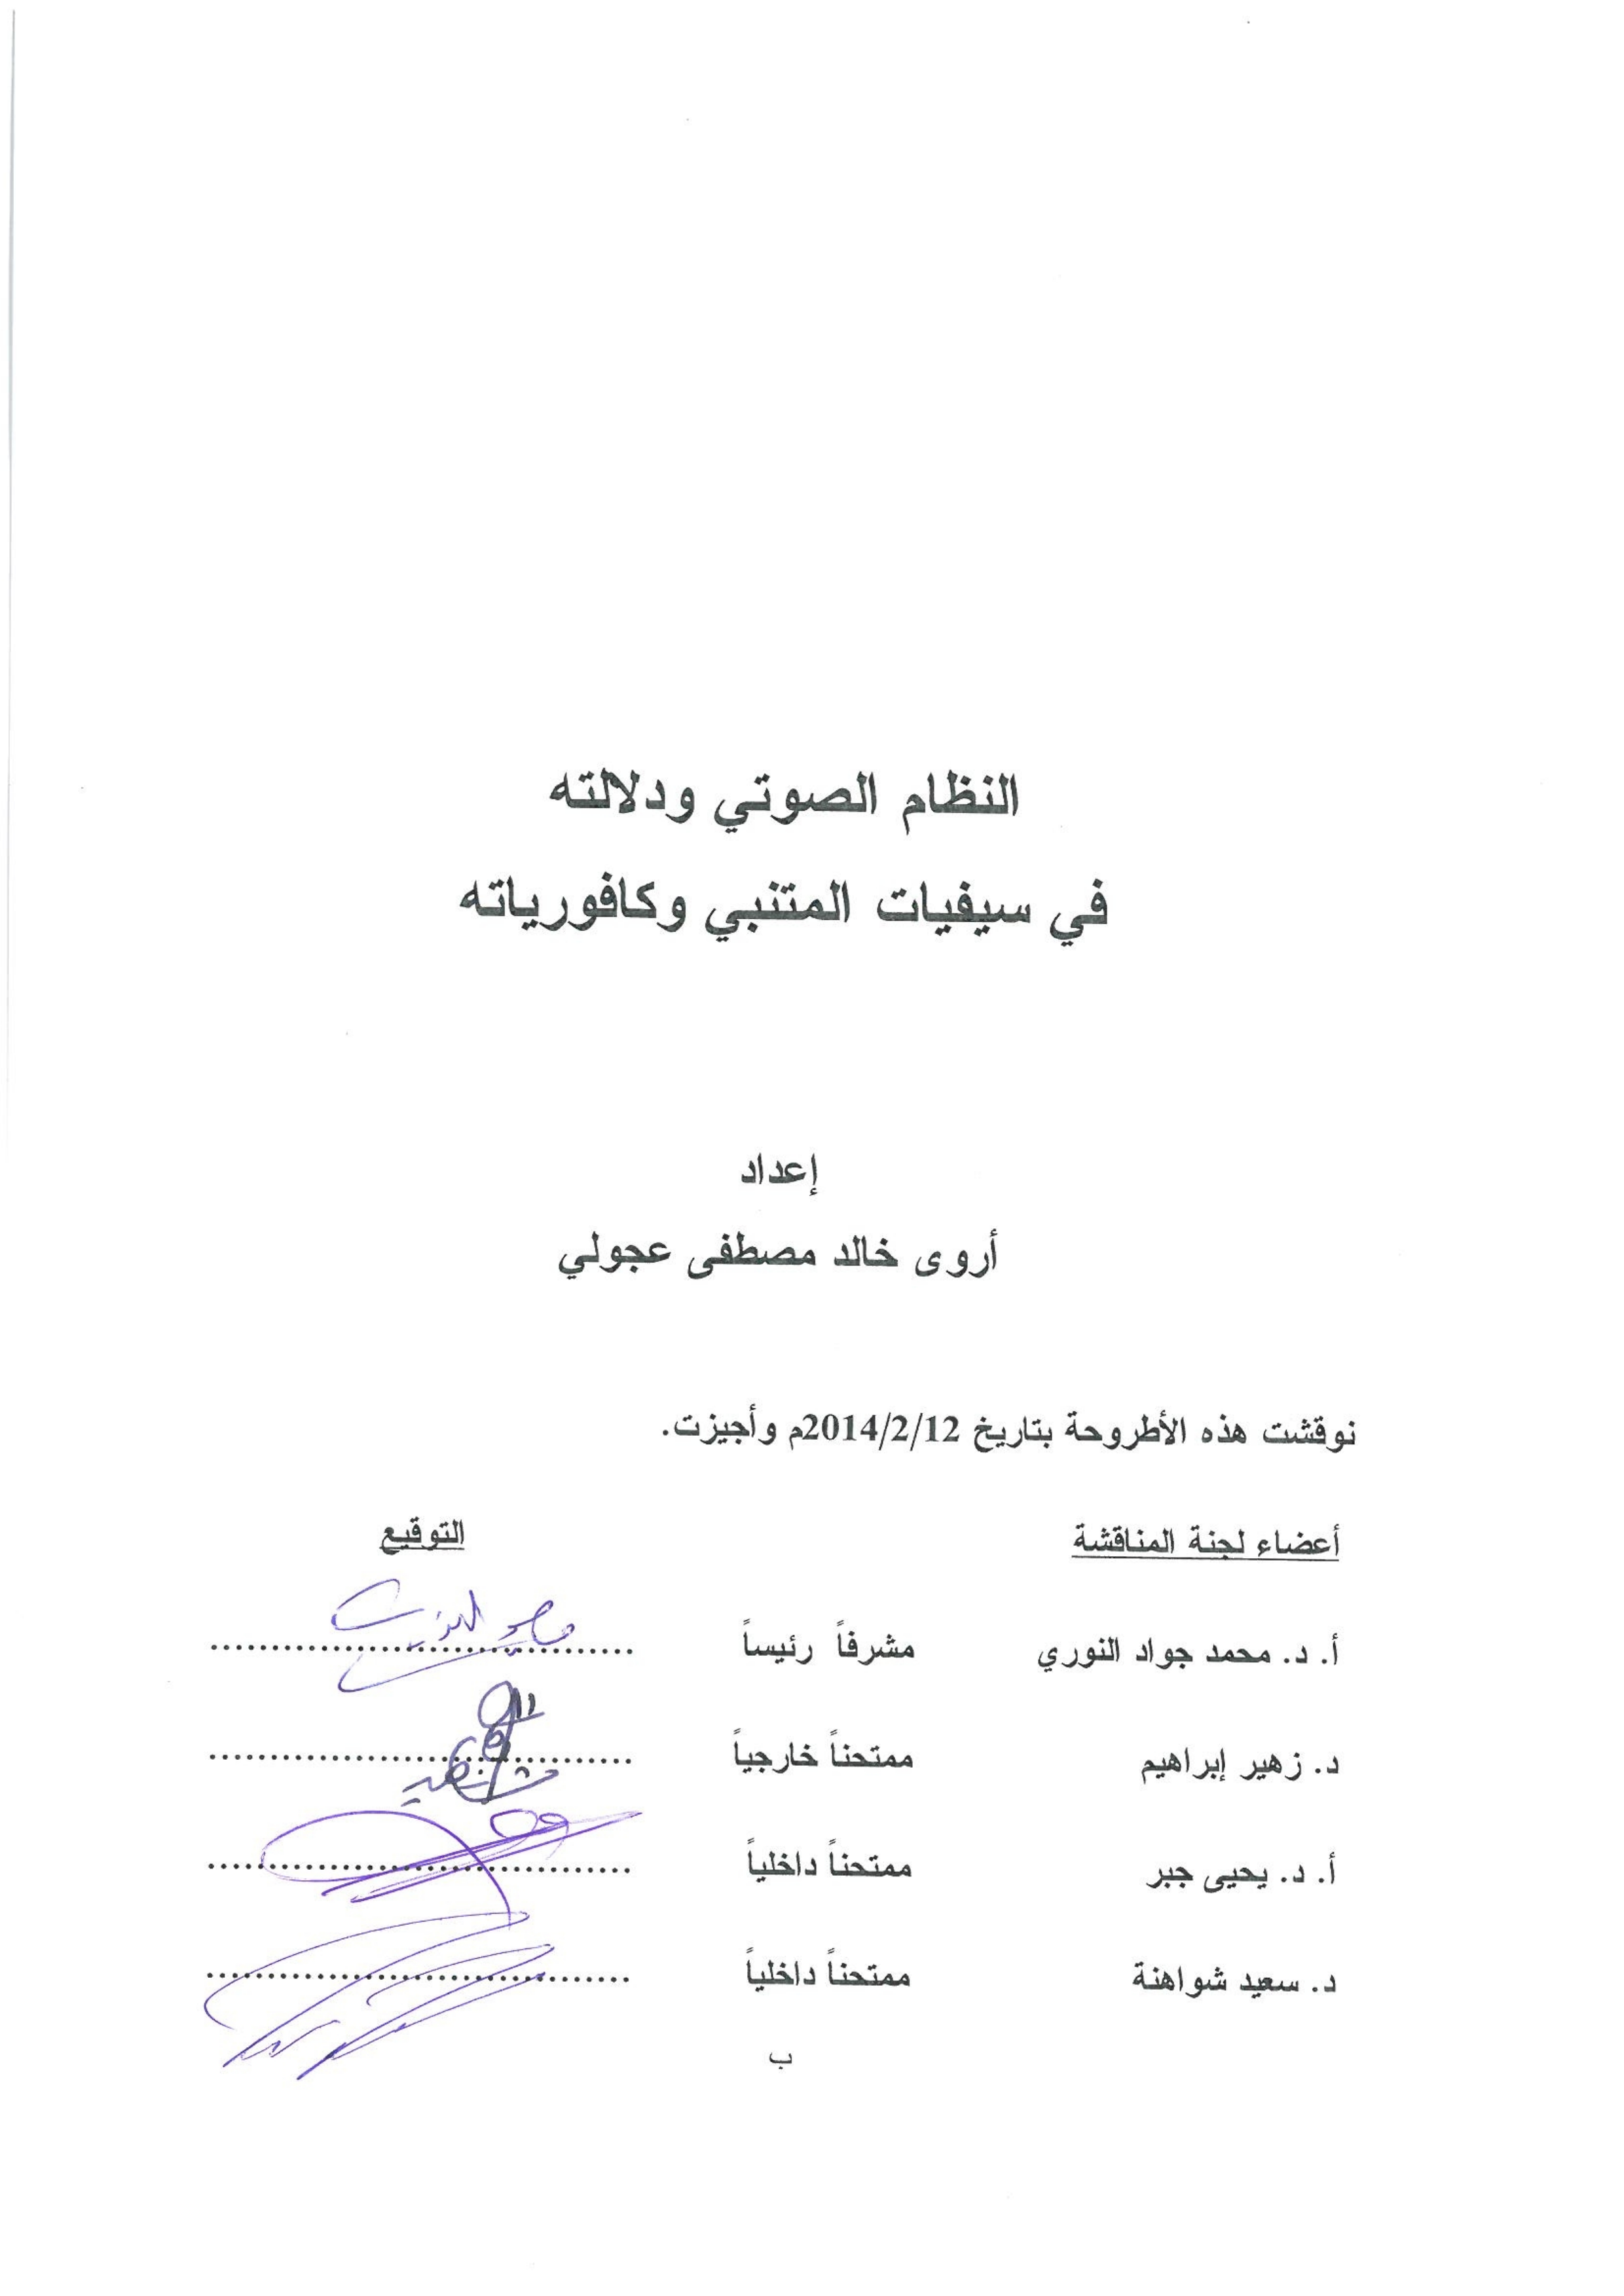 النظام الصوتي ودلالته
في سيفيات المتنبي وكافورياته
إعداد
أروى خالد مصطفى عجولي
نوقشت هذه الأطروحة بتاريخ 2014/2/12م وأجيزت.
أعضاء لجنة المناقشة التوقيع
أ. د. محمد جواد النوري مشرفاً رئيساً ...................................
د. زهير إبراهيم ممتحناً خارجياً ...................................
أ. د. يحيى جبر ممتحناً داخلياً ...................................
د. سعيد شواهنة ممتحناً داخلياً ...................................
ب